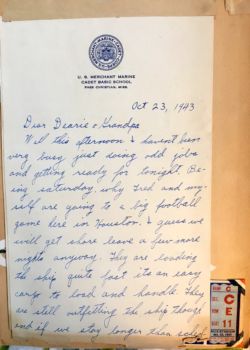 U. S. MERCHANT MARINE
CADET BASIC SCHOOL
PASS CHRISTIAN, MISS.
Oct 23, 1943
Dear Dearie & Grandpa
Well this afternoon I havent been
very busy just doing odd jobs
and getting ready for tonight. Be-
ing saturday why Fred and my-
self are going to a big football
game here in Houston. I guess we
will get shore leave a few more
nights anyway. They are loading
the ship quite fast its an easy
cargo to load and handle. They
are still outfitting the ship though
and if we stay longer than
C
C
E
11